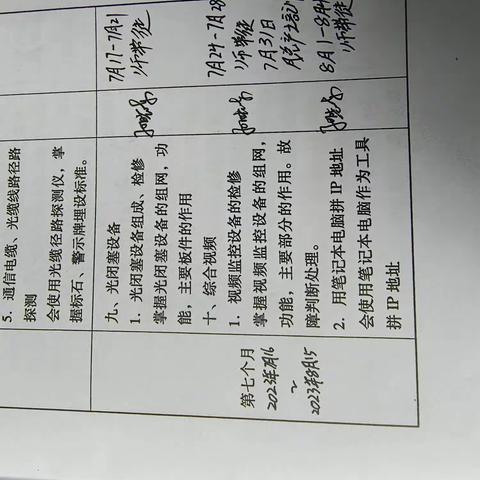 5. 通信电缆、光缆线路径路
探测
会使用光缆径路探测仪,掌
握标石、警示牌埋设标准。
第七个月
2023年7月16
~
2023年8月15
九、光闭塞设备
1. 光闭塞设备组成、检修
掌握光闭塞设备的组网,功
能,主要板件的作用
十、综合视频
1. 视频监控设备的检修
掌握视频监控设备的组网,
功能,主要部分的作用。故
障判断处理。
2. 用笔记本电脑拼 IP 地址
会使用笔记本电脑作为工具
拼 IP 地址
7月17-7月21
师带徒
7月24-7月28
师带徒
7月31日
8月1-8月4
师带徒